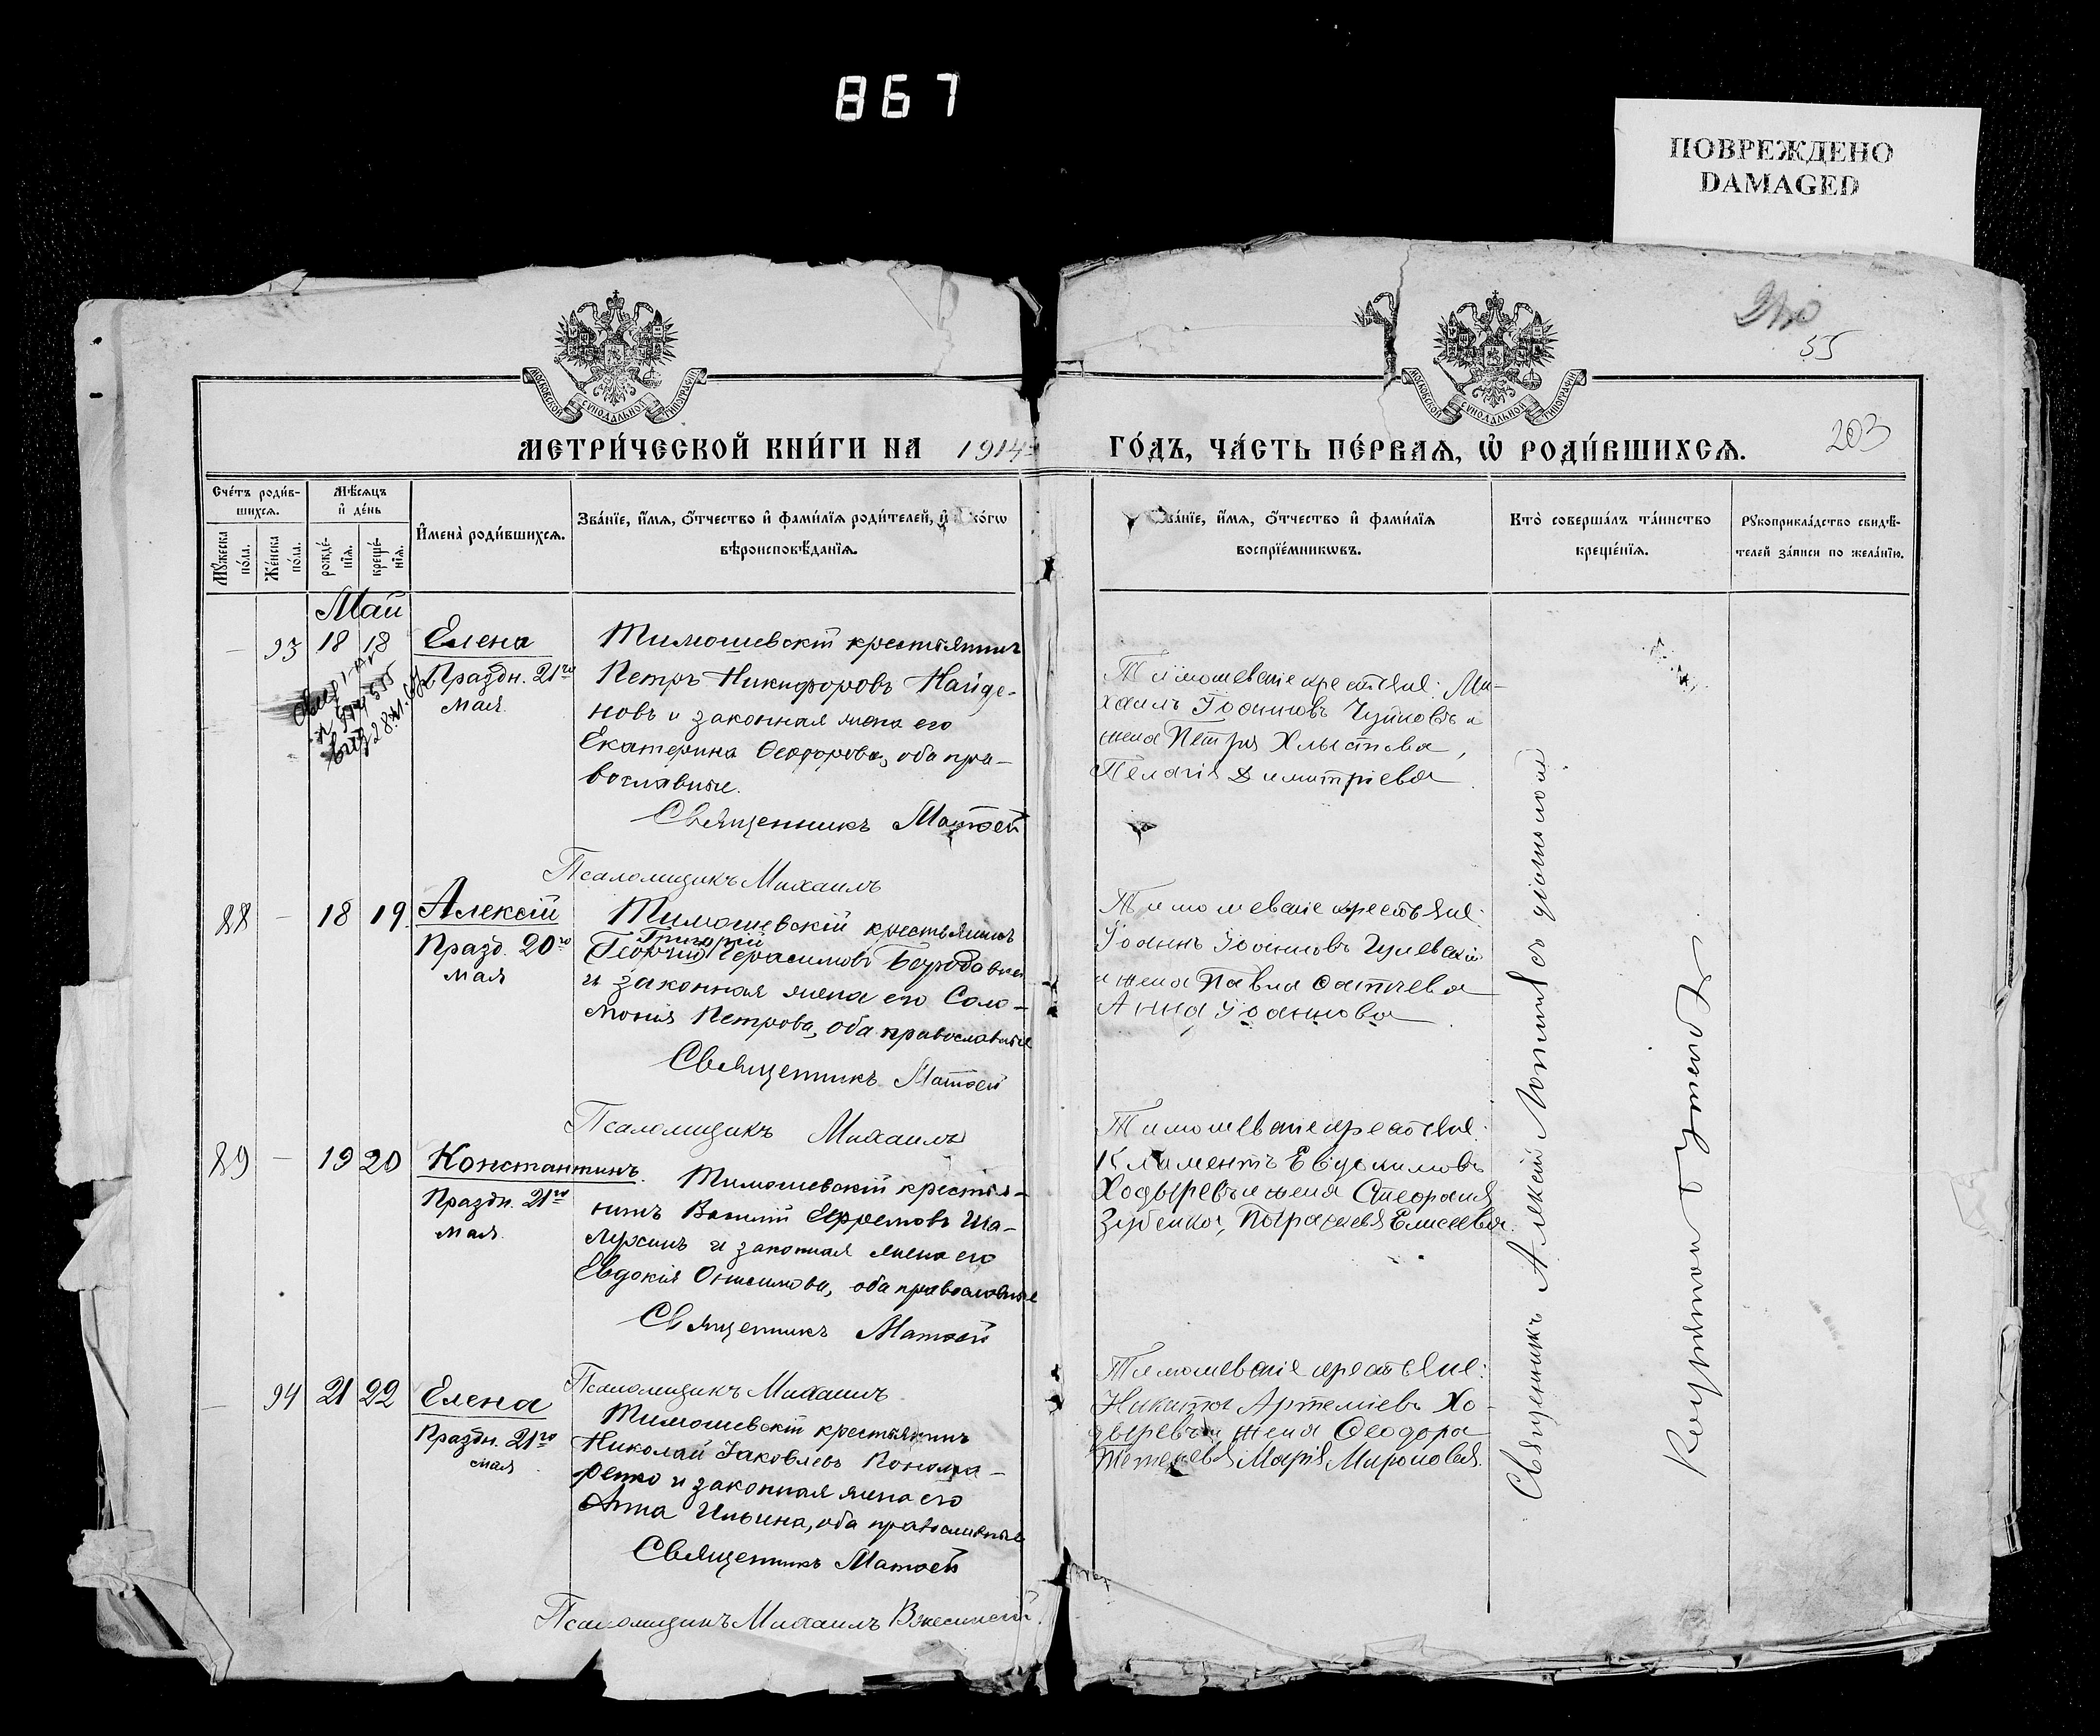 867
ПОВРЕЖДЕНО
DAMAGED
55
203
МОСКОВСКОЙ СѴНОДАЛЬНОЙ ТИПОГРАФІИ
МОСКОВСКОЙ СѴНОДАЛЬНОЙ ТИПОГРАФІИ
МЕТРИ́ЧЕСКОЙ КНИ́ГИ НА 1914
ГО́ДЪ, ЧА́СТЬ ПЕ́РВАѦ, Ѡ РОДИ́ВШИХСѦ.
Сче́тъ роди́в-
шихсѧ.
Мꙋ́жеска по́ла.
Же́нска по́ла.
Мѣ́сѧцъ
и де́нь
рожде́-
нїѧ.
креще́-
нїѧ.
Имена̀ роди́вшихсѧ.
Зва́нїе, и́мѧ, ѻ́тчество и фами́лїѧ роди́телей, и ко́гѡ
вѣроисповѣ́данїѧ.
Зва́нїе, и́мѧ, ѻ́тчество и фами́лїѧ
воспрїе́мникѡвъ.
Кто̀ соверша́лъ та́инство
креще́нїѧ.
Рꙋкоприкла́дство свидѣ́-
телей за́писи по жела́нїю.
Май
— 93 18 18 Елена
Праздн. 21го
мая.
Тимошевскій крестьянинъ
Петръ Никифоровъ Найде-
новъ и законная жена его
Екатерина Ѳеодорова, оба пра-
вославные.
Священникъ Матѳей
Псаломщикъ Михаилъ
Тимошевскіе крестьяне: Ми-
хаилъ Іоанновъ и
жена Петра Хлыстова,
Пелагія Димитріева
88 — 18 19 Алексій
Празд. 20го
мая
Тимошевскій крестьянинъ
Григорій
Георгій Герасимовъ
и законная жена его Соло-
монія Петрова, оба православные
Священникъ Матѳей
Псаломщикъ Михаилъ
Тимошевскіе крестьяне:
Іоаннъ Іоанновъ
и жена Павла
Анна Іоаннова
89 — 19 20 Константинъ.
Праздн. 21го
мая.
Тимошевскій крестья-
нинъ Василій Ефремовъ Ша-
лухинъ и законная жена его
Евдокія Онисимова, оба православные
Священникъ Матѳей
Псаломщикъ Михаилъ
Тимошевскіе крестьяне:
Климентъ Евдокимовъ
Ходыревъ и жена Стефана
Зубенко, Елисеева.
— 94 21 22 Елена
Праздн. 21го
мая
Тимошевскій крестьянинъ
Николай Іаковлевъ Понома-
ренко и законная жена его
Анна Ильина, оба православные
Священникъ Матѳей
Псаломщикъ Михаилъ
Тимошевскіе крестьяне:
Никита Артеміевъ Хо-
дыревъ и жена Ѳеодора
Марія Миронова.
Священникъ Алексій съ діакономъ